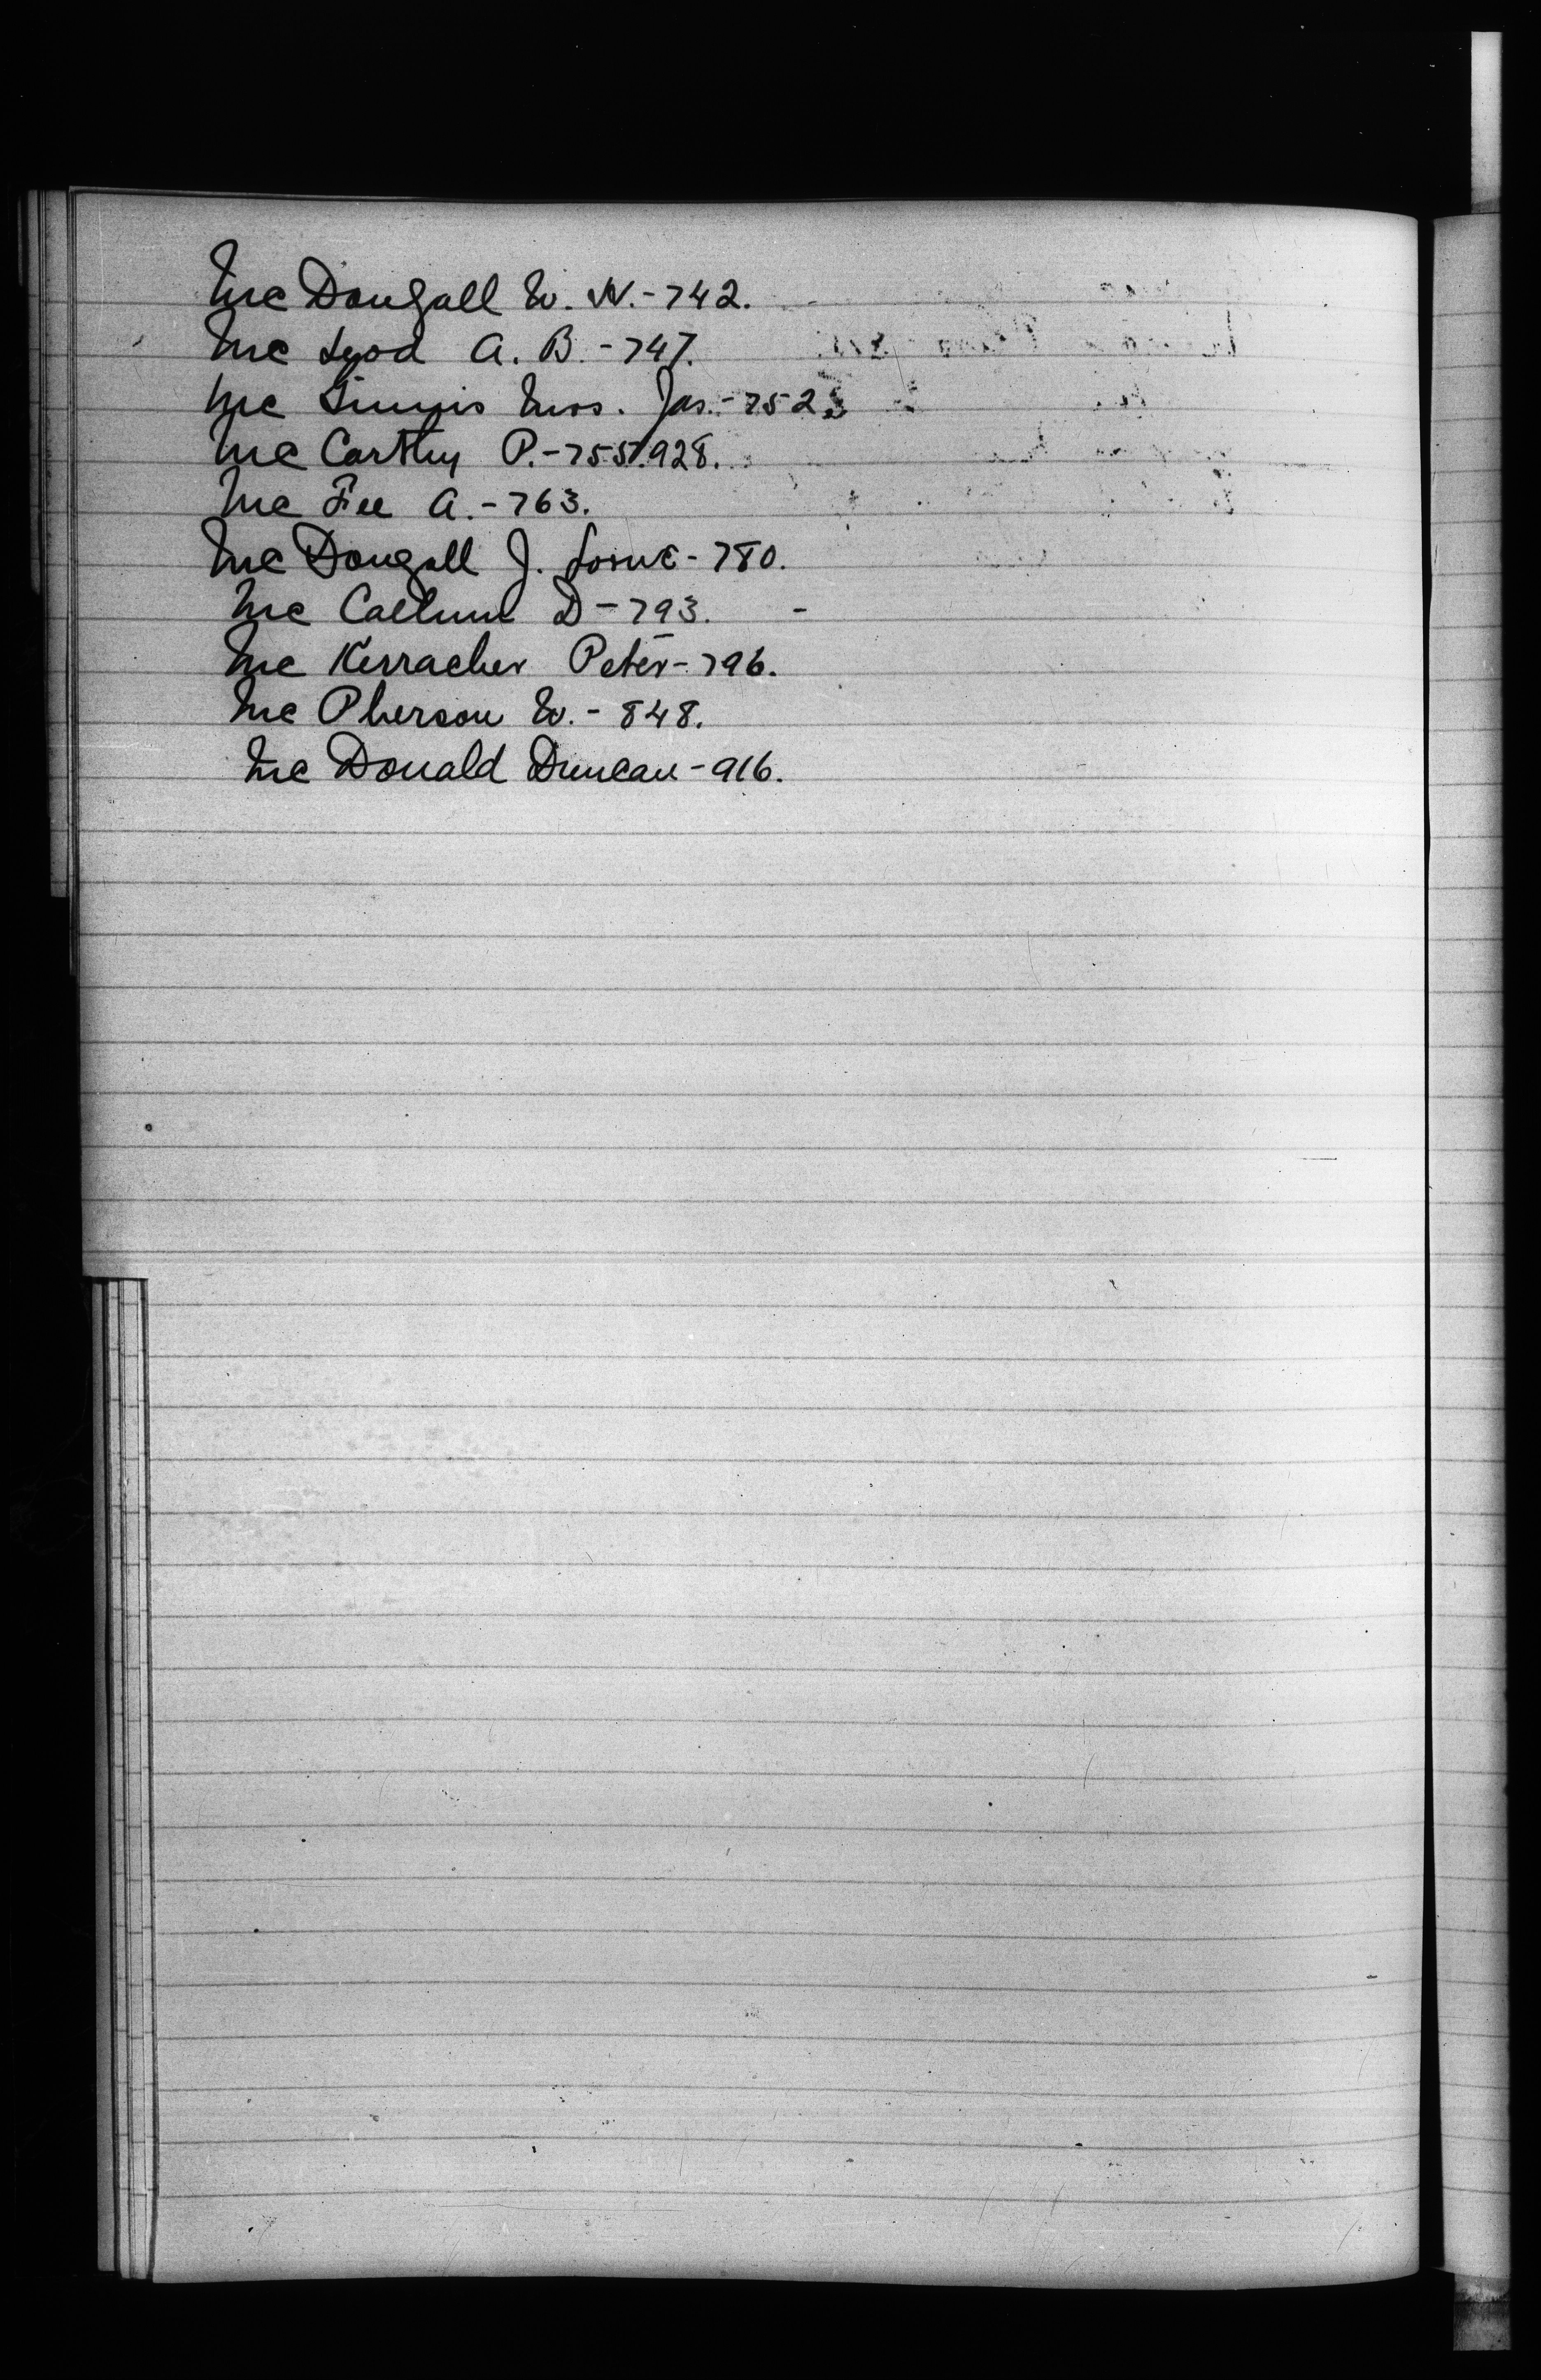 Mc Dougall W. W. - 742.
Mc Leod A. B. - 747.
Mc Ginnis Mrs. Jas. - 752.
Mc Carthy P. - 755.928.
Mc Fee A. - 763.
Mc Dougall J. Lorne - 780.
Mc Callum D - 793. -
Mc Kerracher Peter - 796.
Mc Pherson W. - 848.
Mc Donald Duncan - 916.